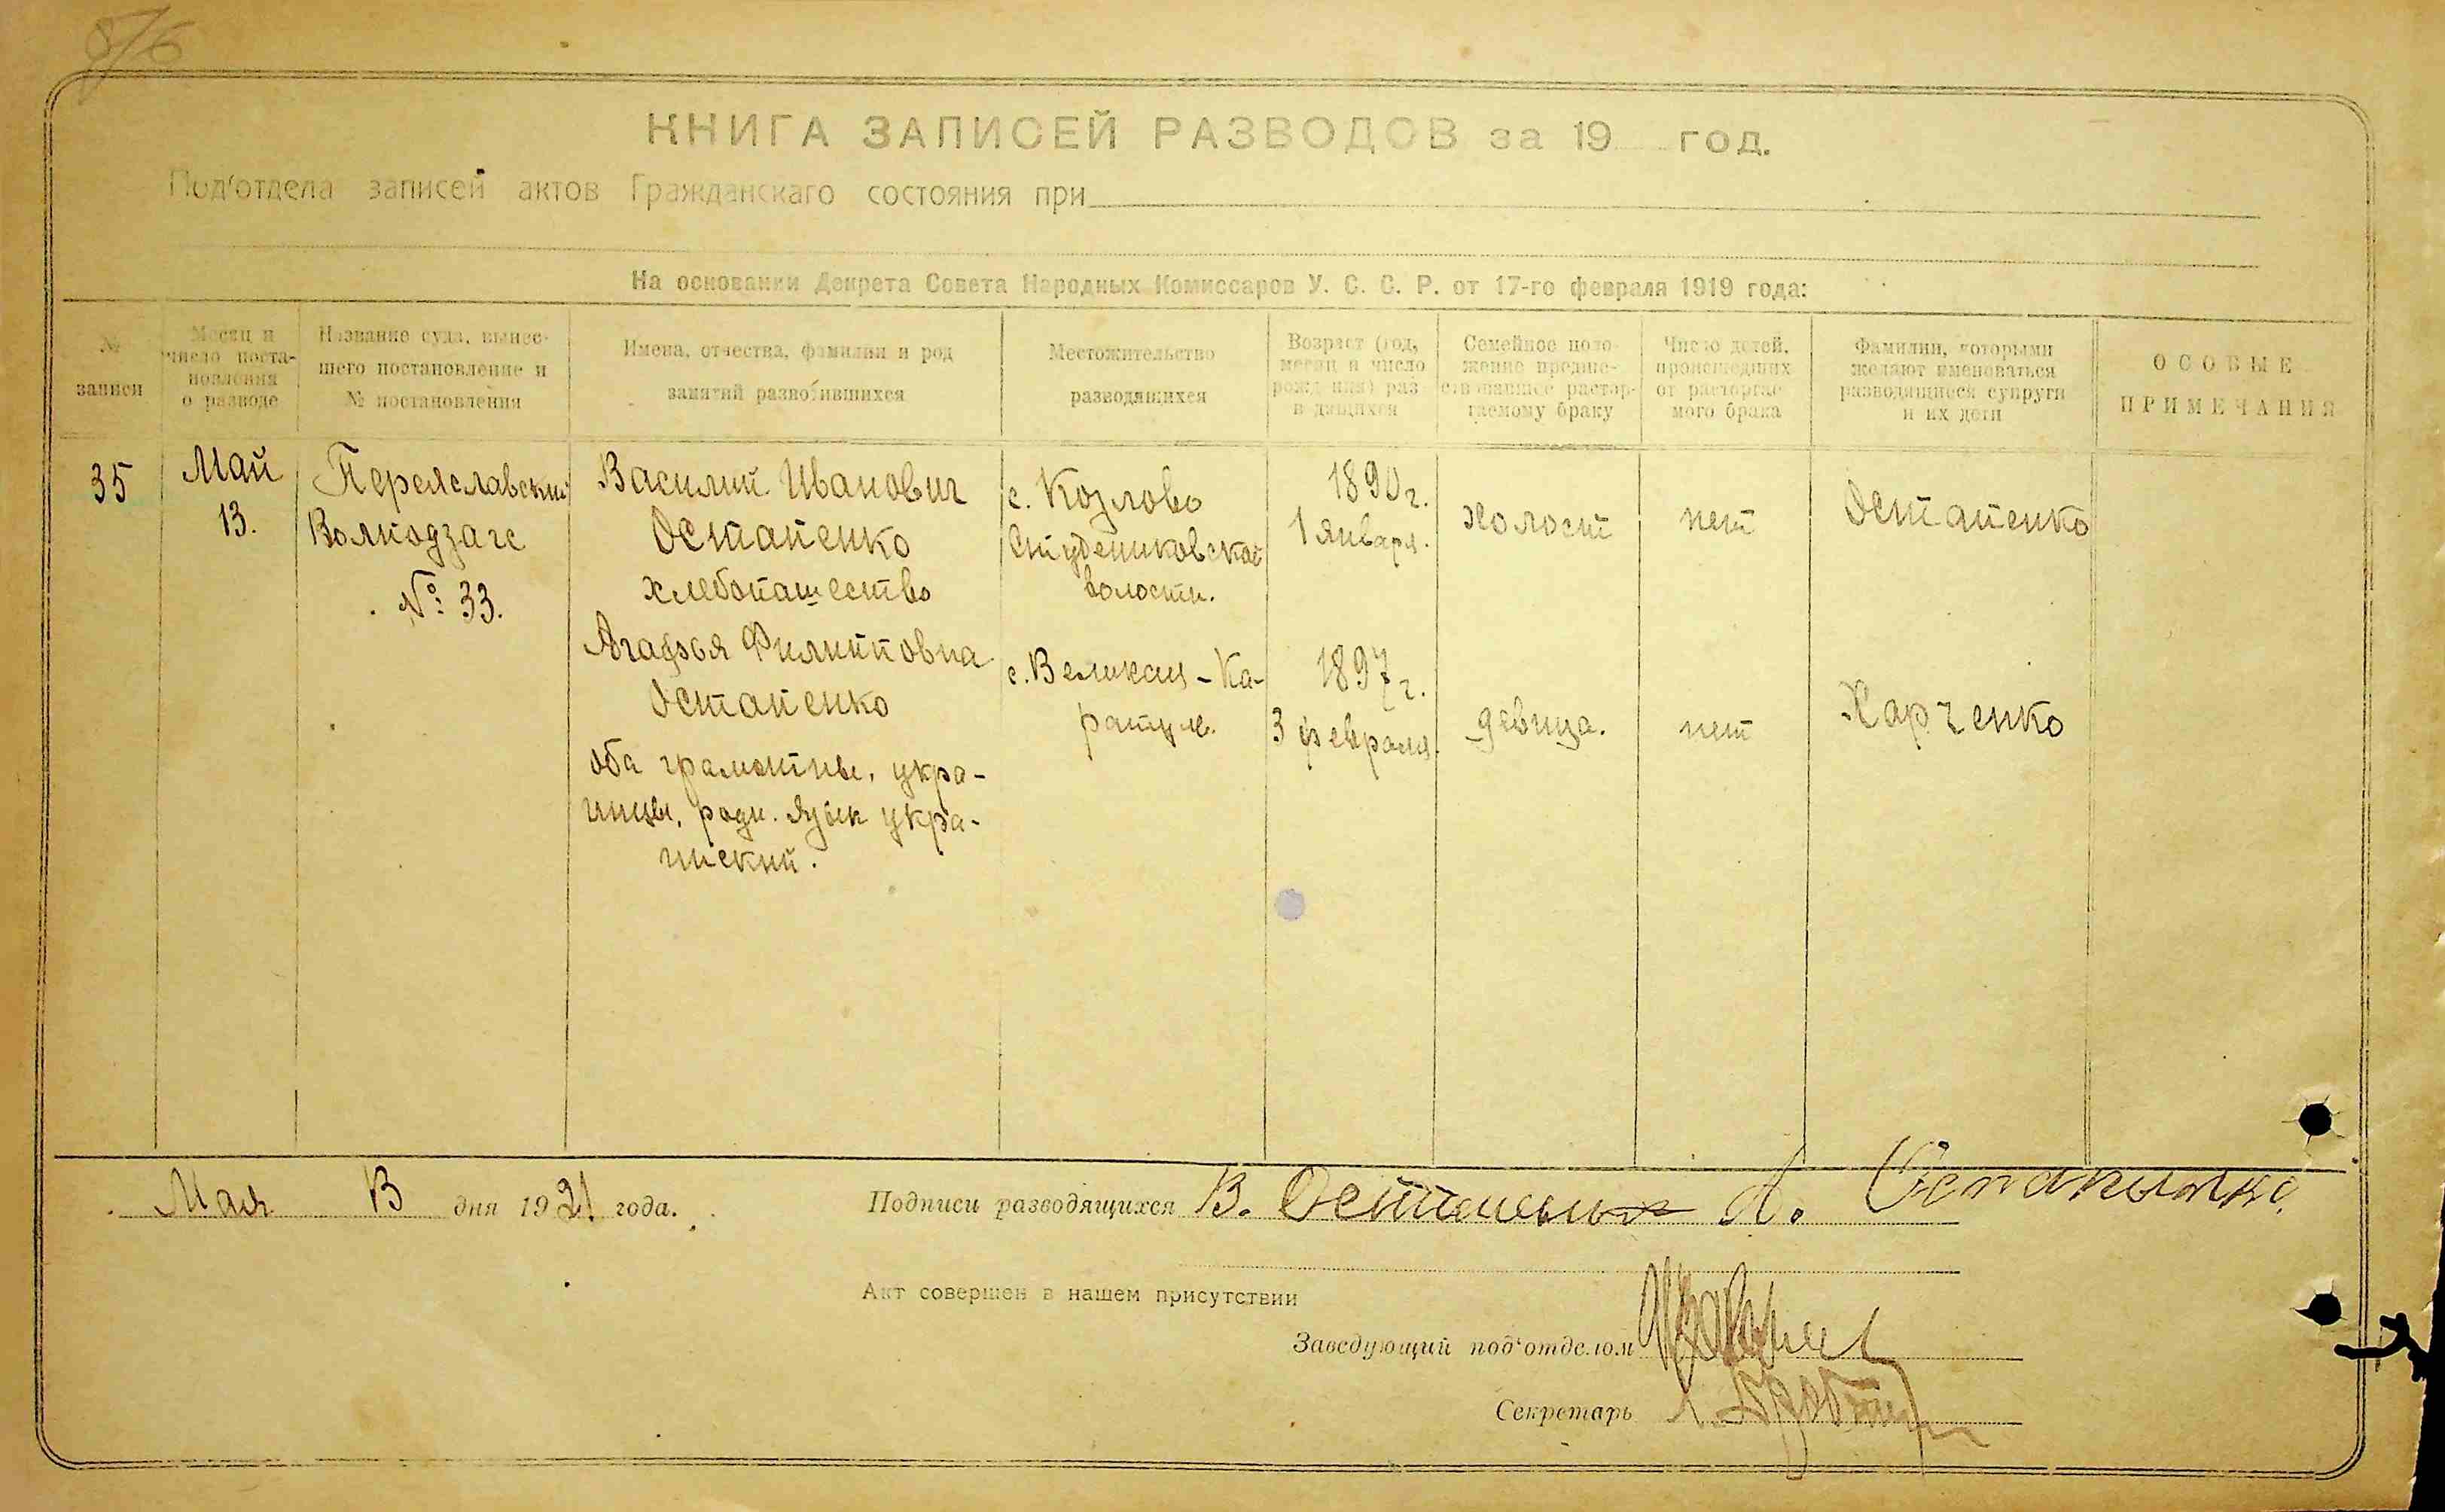 876
КНИГА ЗАПИСЕЙ РАЗВОДОВ за 19 год.
Под'отдела записей актов Гражданскаго состояния при
На основании Декрета Совета Народных Комиссаров У. С. С. Р. от 17-го февраля 1919 года:
№
записи
Месяц и
число поста-
новления
о разводе
Название суда, вынес-
шего постановление и
№ постановления
Имена, отчества, фамилии и род
занятий разводившихся
Местожительство
разводящихся
Возраст (год,
месяц и число
рождения) раз-
водящихся
Семейное поло-
жение предше-
ствовавшее растор-
гаемому браку
Число детей,
происшедших
от расторгае-
мого брака
Фамилии, которыми
желают именоваться
разводящиеся супруги
и их дети
ОСОБЫЕ
ПРИМЕЧАНИЯ
35
Май
13.
Переяславский
Волподзагс
№ 33.
Василий Иванович
Остапенко
хлебопашество
с. Козлово
Студениковской
волости.
1890 г.
1 января.
холост
нет
Остапенко
Агафья Филипповна
Остапенко
с. Великая-Ка-
ратуль.
1897 г.
3 февраля.
девица.
нет
Харченко
оба грамотны, укра-
инцы, родн. язык укра-
инский.
Мая 13 дня 1921 года.
Подписи разводящихся В. Остапенко А.
Акт совершен в нашем присутствии
Заведующий под'отделом
Секретарь